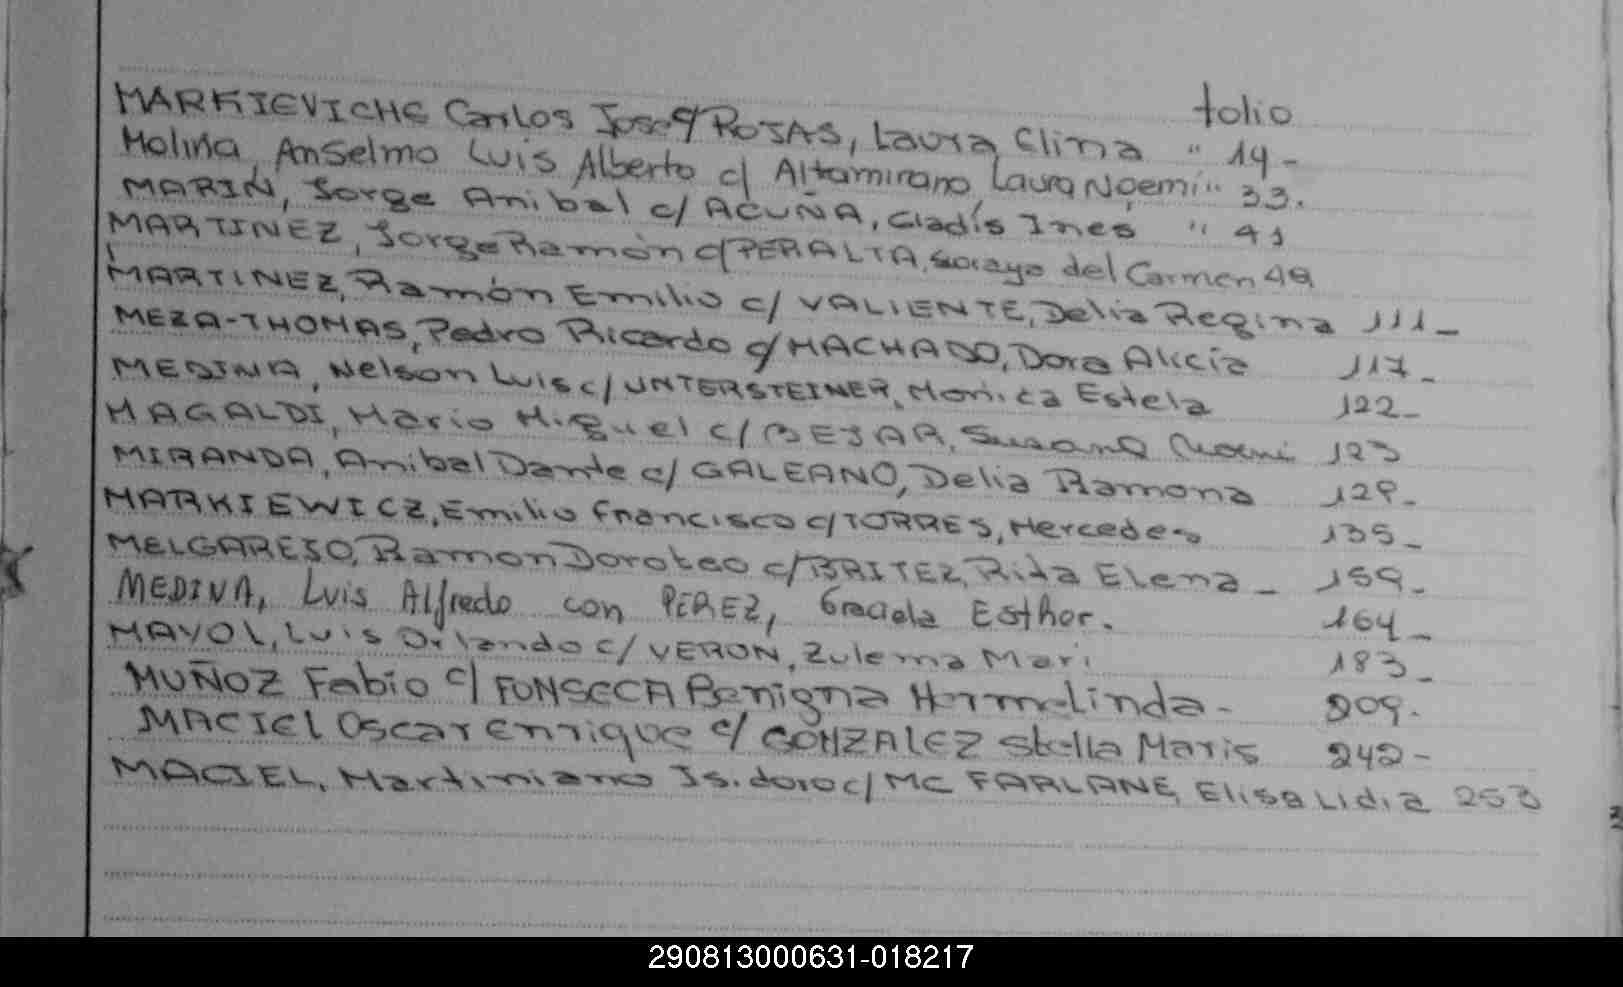 folio
MARKIEVICHE Carlos José c/ ROJAS, Laura Elina " 14-
Molina, Anselmo Luis Alberto c/ Altamirano, Laura Noemi " 33.
MARIN, Jorge Anibal c/ ACUÑA, Gladís Inés " 41
MARTINEZ, Jorge Ramón c/ PERALTA, Soraya del Carmen 49
MARTINEZ, Ramón Emilio c/ VALIENTE, Delia Regina 111-
MEZA-THOMAS, Pedro Ricardo c/ MACHADO, Dora Alicia 117-
MEDINA, Nelson Luis c/ UNTERSTEINER, Monica Estela 122-
MAGALDI, Mario Miguel c/ BEJAR, Susana 123
MIRANDA, Anibal Dante c/ GALEANO, Delia Ramona 129-
MARKIEWICZ, Emilio Francisco c/ TORRES, Mercedes 135-
MELGAREJO, Ramon Doroteo c/ BRITEZ, Rita Elena - 159-
MEDINA, Luis Alfredo con PEREZ, Graciela Esther. 164-
MAYOL, Luis Orlando c/ VERON, Zulema Mari 183-
MUÑOZ Fabio c/ FONSECA Benigna Hermelinda- 209.
MACIEL Oscar Enrique c/ GONZALEZ Stella Maris 242-
MACIEL, Martiniano Isidoro c/ MC FARLANE, Elisa Lidia 253
290813000631-018217